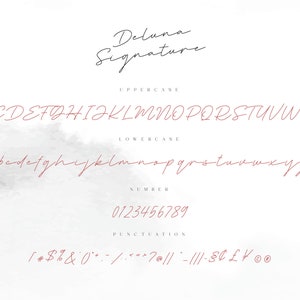 Deluna
Signature
UPPERCASE
CDEFGHIJKLMNOPQRSTUVW
LOWERCASE
bcdefghijklmnopqrstuvwxy
NUMBER
0123456789
PUNCTUATION